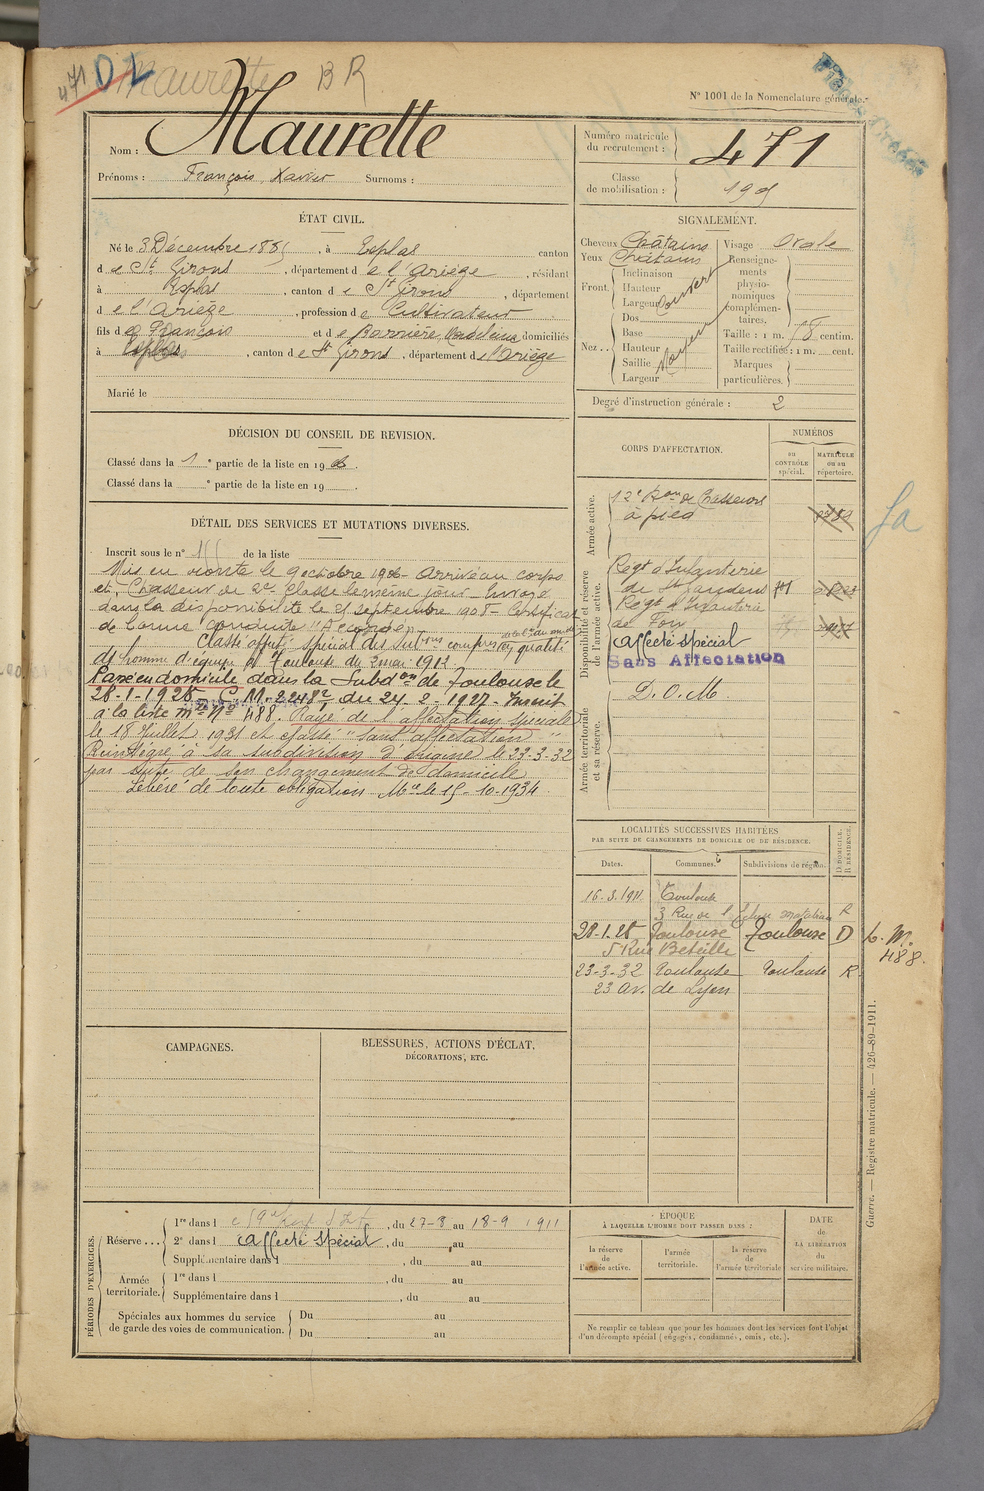 471 Maurette BR
N° 1001 de la Nomenclature générale.
Nom : Maurette
Prénoms : François, Xavier Surnoms :
Numéro matricule du recrutement : 471
Classe de mobilisation :
ÉTAT CIVIL.
Né le 3 Décembre 188 , à Esplas canton
de St Girons , département de l'Ariège , résidant
à Esplas , canton de St Girons , département
de l'Ariège , profession de Cultivateur
fils de François et de Barrière, domiciliés
à Esplas , canton de St Girons , département d Ariège
Marié le
SIGNALEMENT.
Cheveux Châtains
Yeux Châtains
Front. Inclinaison
Hauteur
Largeur
couvert
Nez.. Dos
Base
Hauteur
Saillie
Largeur
Moyen
Visage Ovale
Renseigne-
ments
physio-
nomiques
complémen-
taires.
Taille : 1 m. centim.
Taille rectifiée : 1 m. cent.
Marques
particulières.
Degré d'instruction générale : 2
DÉCISION DU CONSEIL DE REVISION.
Classé dans la 1 e partie de la liste en 190
Classé dans la e partie de la liste en 19 .
DÉTAIL DES SERVICES ET MUTATIONS DIVERSES.
Inscrit sous le n° de la liste
Mis en route le 9 octobre 1906 Arrivé au corps
et Chasseur de 2e Classe le même jour Envoyé
dans la disponibilité le 21 septembre 1908 - Certificat
de bonne conduite "Accordé"
Classé affecté spécial des qualité
d'homme d'équipe à Toulouse du 2 mai 1912
Passé en domicile dans la Subdon de Toulouse le
28-1-1925 C.M. 2248 du 24-2-1927. Inscrit
à la liste N° 488. Rayé de l'affectation spéciale
le 18 Juillet 1931 et classé "sans affectation"
Réintégré à sa subdivision d'origine le 23-3-32
par suite de son changement de domicile
Libéré de toute obligation Mre le 15-10-1934
CORPS D'AFFECTATION.
NUMÉROS
AU CONTRÔLE spécial.
MATRICULE ou au répertoire.
Armée active.
12e Bon de Chasseurs
à pied
Disponibilité et réserve de l'armée active.
Regt d'Infanterie
de St Gaudens
Regt d'Infanterie
de Foix
affecté spécial
Sans Affectation
Armée territoriale et sa réserve.
D. O. M.
LOCALITÉS SUCCESSIVES HABITÉES
PAR SUITE DE CHANGEMENTS DE DOMICILE OU DE RÉSIDENCE.
D DOMICILE. R RÉSIDENCE.
Dates. Communes. Subdivisions de région.
16.3.1911 Toulouse
3 Rue de R
28-1-25 Toulouse Toulouse D L. M. 488.
5 Rue Béteille
23-3-32 Toulouse Toulouse R
23 av. de Lyon
CAMPAGNES.
BLESSURES, ACTIONS D'ÉCLAT,
DÉCORATIONS, ETC.
Guerre. — Registre matricule. — 426-89-1911.
PÉRIODES D'EXERCICES.
Réserve... 1re dans l , du 27-8 au 18-9 1911
2e dans l affecté spécial , du au
Supplémentaire dans l , du au
Armée territoriale. 1re dans l , du au
Supplémentaire dans l , du au
Spéciales aux hommes du service
de garde des voies de communication.
Du au
Du au
ÉPOQUE
À LAQUELLE L'HOMME DOIT PASSER DANS :
la réserve de l'armée active.
l'armée territoriale.
la réserve de l'armée territoriale
DATE
de
LA LIBÉRATION
du
service militaire.
Ne remplir ce tableau que pour les hommes dont les services font l'objet
d'un décompte spécial (engagés, condamnés, omis, etc.).